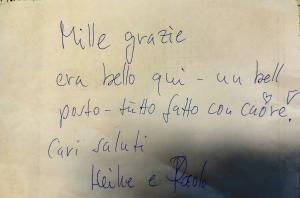 Mille grazie
era bello qui - un bell
posto - tutto fatto con cuore!
Cari saluti
Heike e Paolo